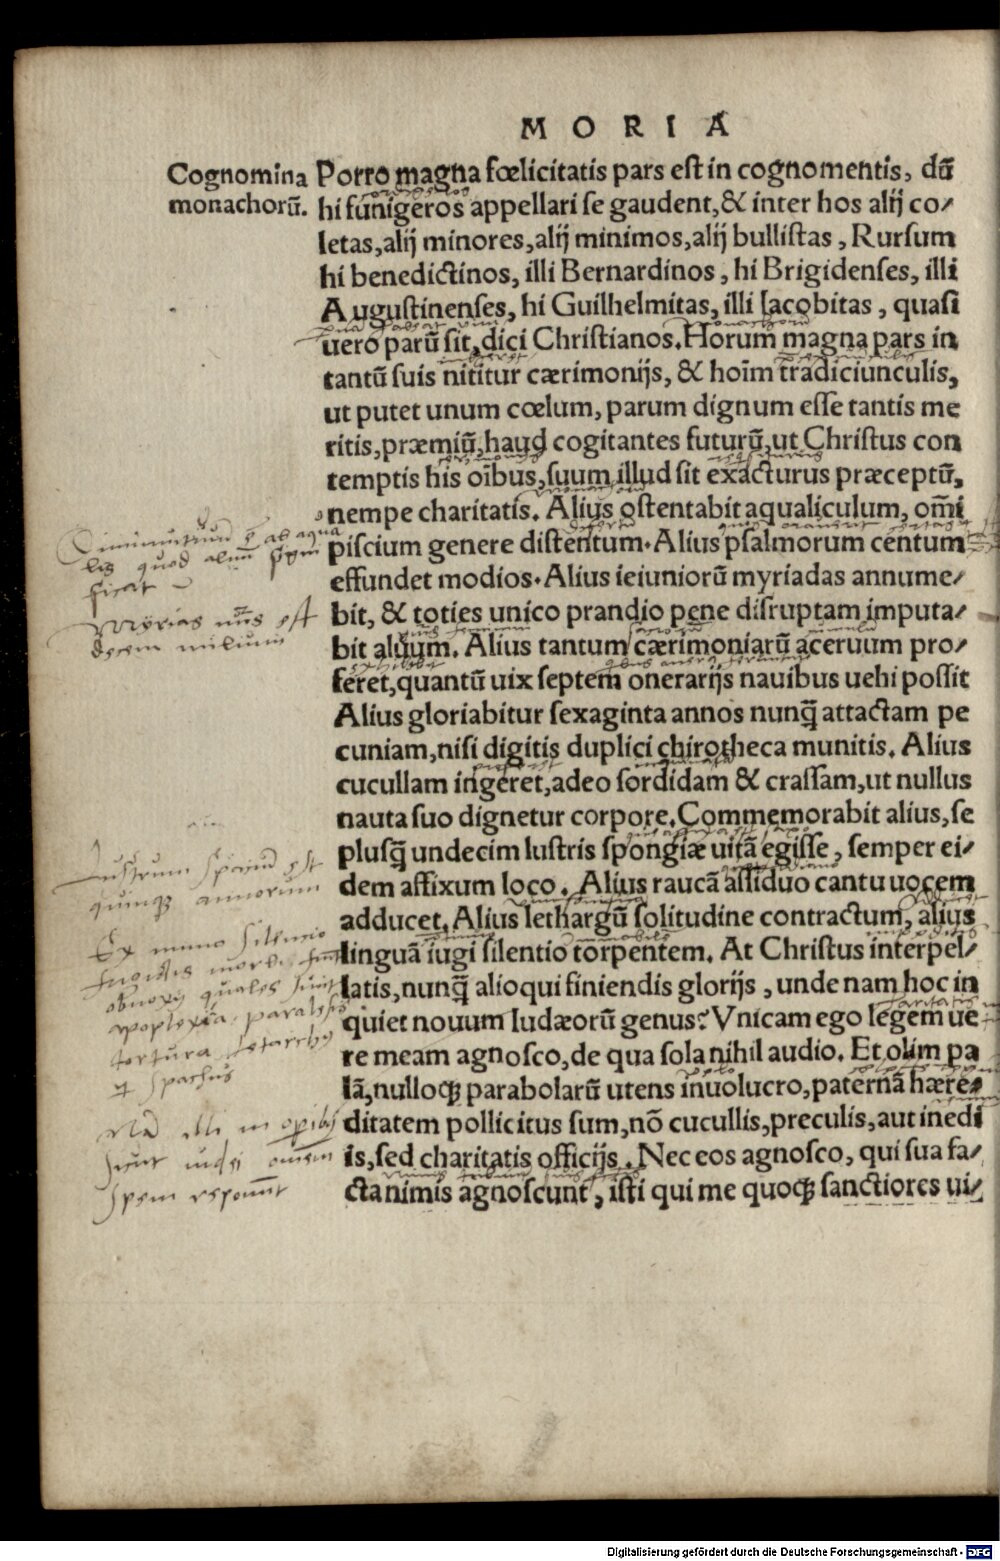 MORIA
Cognomina
monachorū.
Porro magna fœlicitatis pars est in cognomentis, dū
hi funigeros appellari se gaudent, & inter hos alij co/
letas, alij minores, alij minimos, alij bullistas, Rursum
hi benedictinos, illi Bernardinos, hi Brigidenses, illi
Augustinenses, hi Guilhelmitas, illi Iacobitas, quasi
uero parū sit, dici Christianos. Horum magna pars in
tantū suis nititur cærimonijs, & hoīm tradiciunculis,
ut putet unum cœlum, parum dignum esse tantis me
ritis, præmiū, haud cogitantes futurū, ut Christus con
temptis his oībus, suum illud sit exacturus præceptū,
nempe charitatis. Alius ostentabit aqualiculum, om̄i
piscium genere distentum. Alius psalmorum centum
effundet modios. Alius ieiuniorū myriadas annume/
bit, & toties unico prandio pene disruptam imputa/
bit aluum. Alius tantum cærimoniarū aceruum pro/
feret, quantū uix septem onerarijs nauibus uehi possit
Alius gloriabitur sexaginta annos nunq̄ attactam pe
cuniam, nisi digitis duplici chirotheca munitis. Alius
cucullam ingeret, adeo sordidam & crassam, ut nullus
nauta suo dignetur corpore. Commemorabit alius, se
plusq̄ undecim lustris spongiæ uitā egisse, semper ei/
dem affixum loco. Alius raucā assiduo cantu uocem
adducet, Alius lethargū solitudine contractum, alius
linguā iugi silentio torpentem. At Christus interpel/
latis, nunq̄ alioqui finiendis glorijs, unde nam hoc in
quiet nouum Iudæorū genus? Vnicam ego legem ue
re meam agnosco, de qua sola nihil audio. Et olim pa
lā, nulloq; parabolarū utens inuolucro, paternā hære/
ditatem pollicitus sum, nō cucullis, preculis, aut inedi
is, sed charitatis officijs. Nec eos agnosco, qui sua fa/
cta nimis agnoscunt, isti qui me quoq; sanctiores ui/
Diminutiuum ab aqua
lis quod alum̄
ficat
Myrias est
decem milium
Lustrum est
quinq; annorum
Ex nimio silentio
morbi
obnoxij quales sunt
apoplexia, paralysis
tortura
spasmus
Nā illi in opibus
spem reponunt
Digitalisierung gefördert durch die Deutsche Forschungsgemeinschaft - DFG